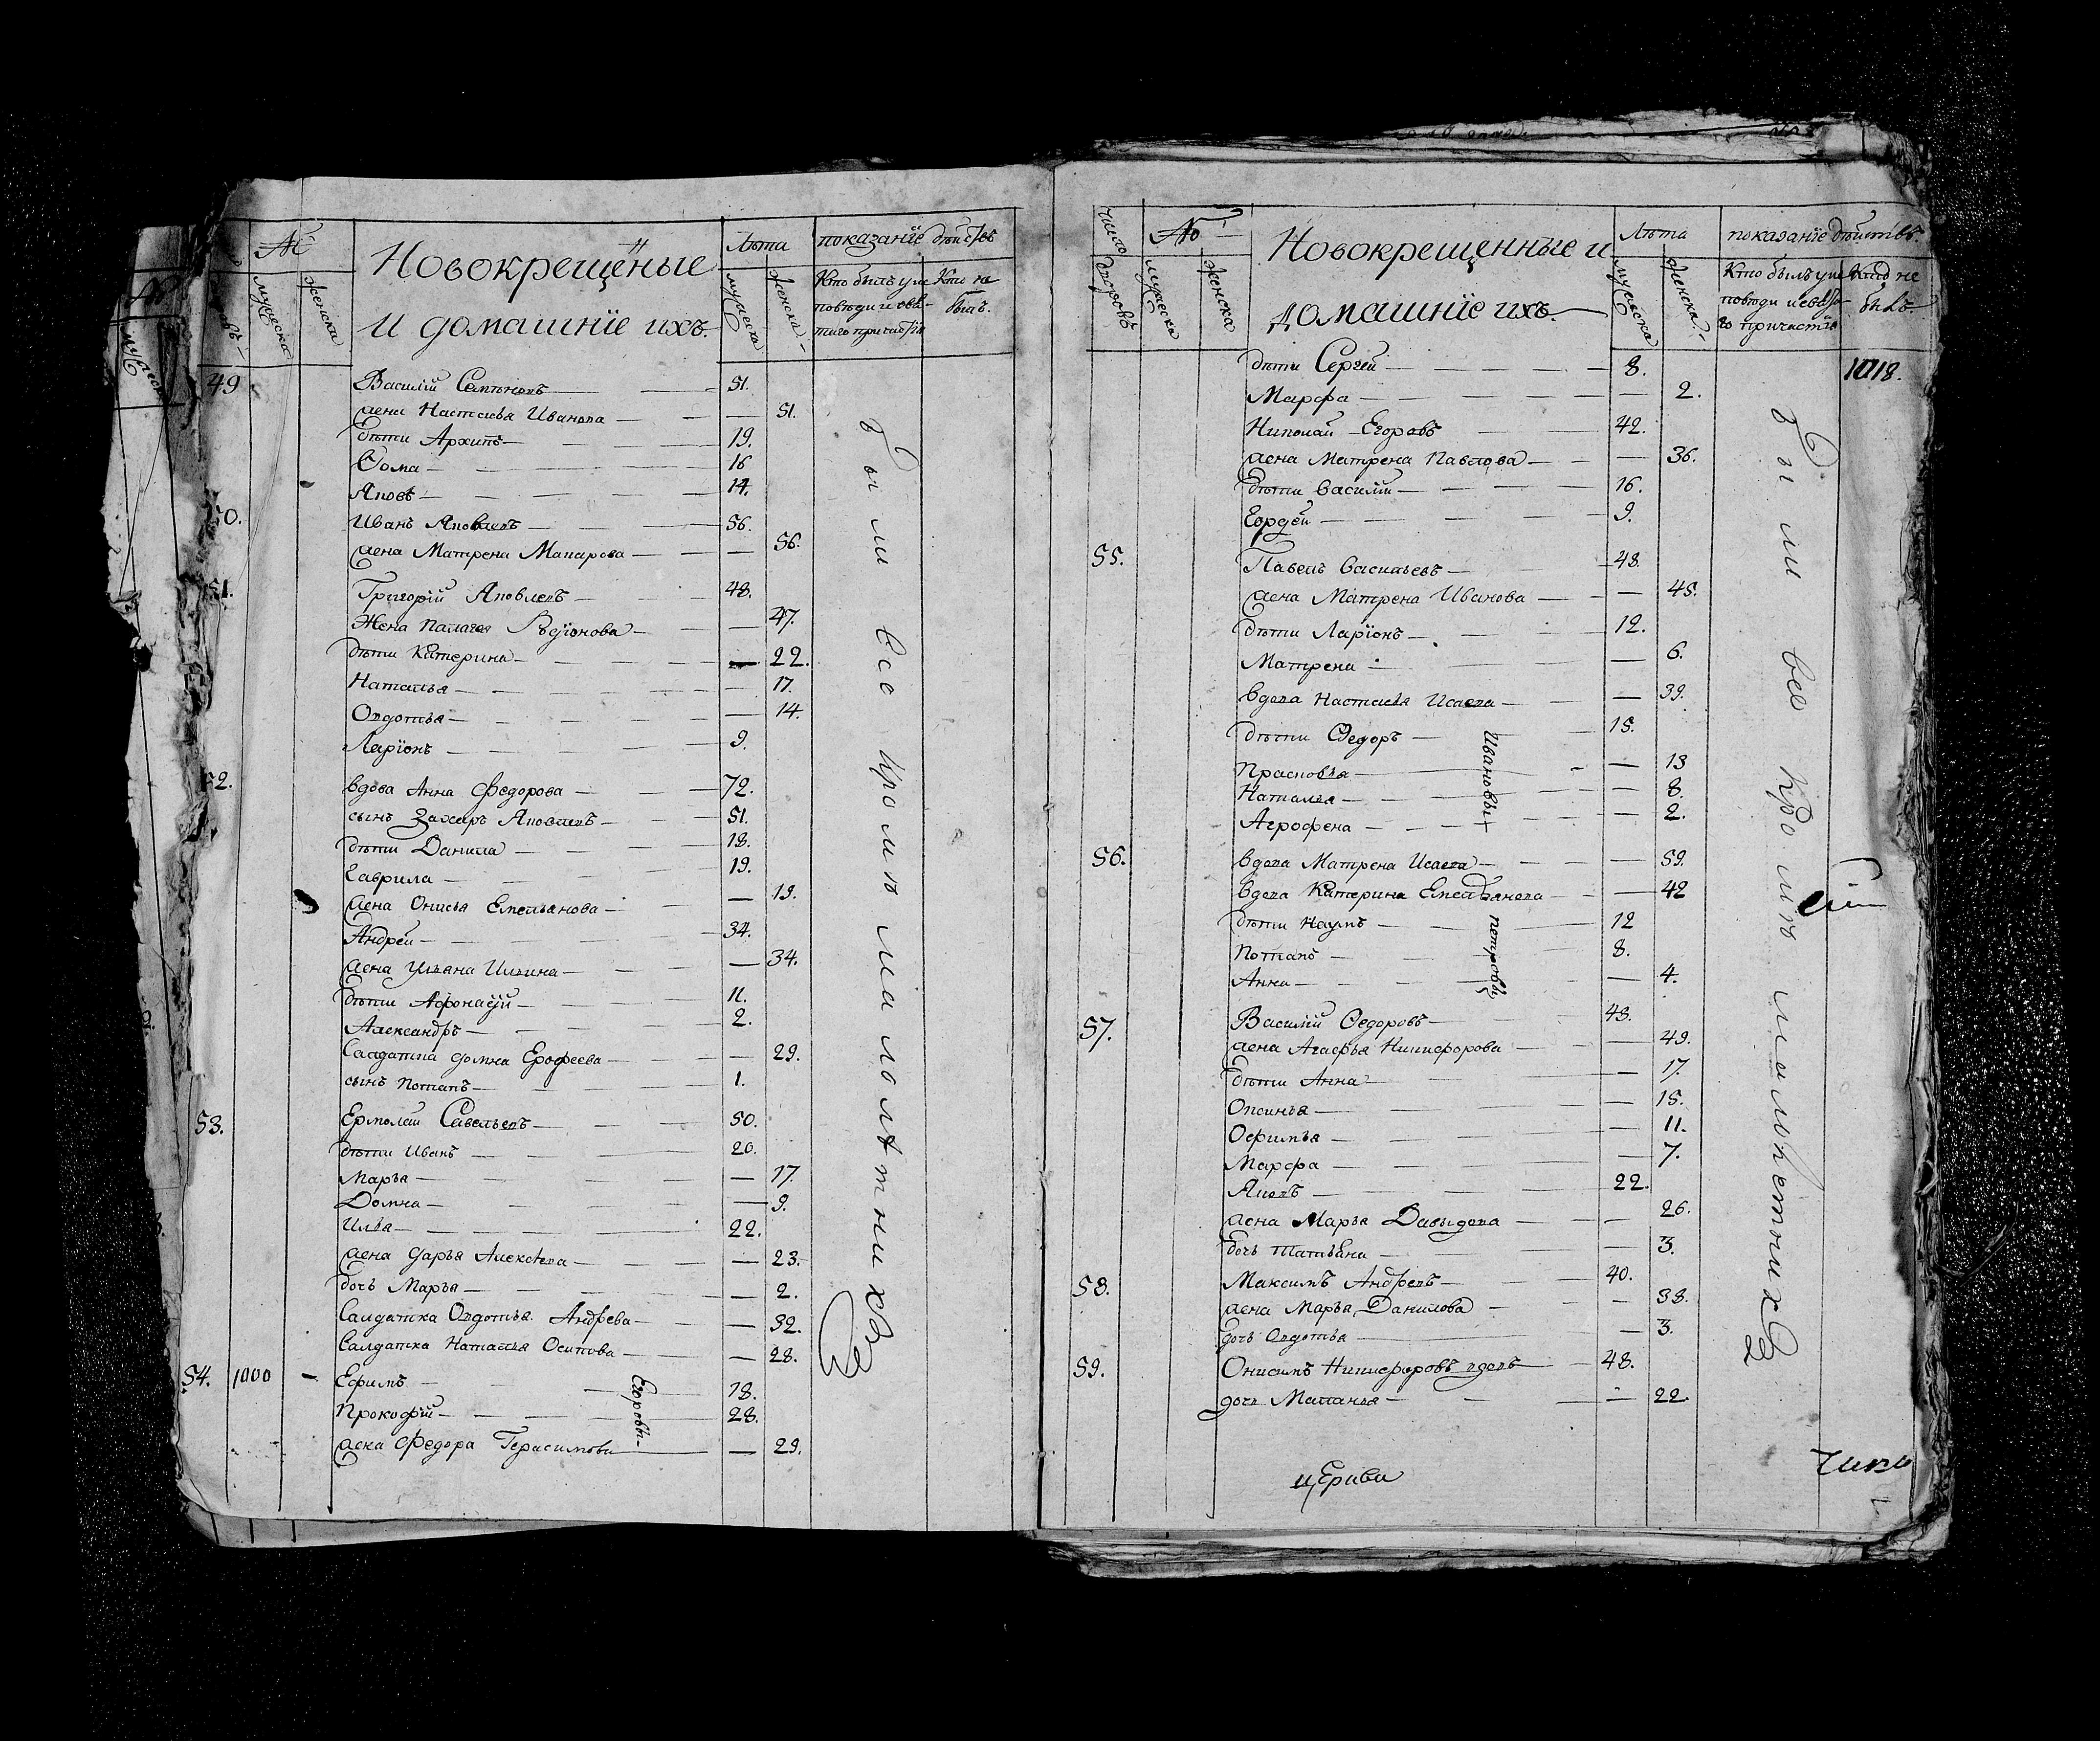 №
Новокрещеные
и домашние ихъ
мужеска
женска
Лѣта
мужеска
женска
показание дѣйствъ
Кто былъ у испо
вѣди и свя
таго причастия
Кто не
былъ.
49 Василий Семеновъ 51.
жена Настасья Иванова 51.
дѣти Архипъ 19.
Ѳома 16
Яковъ 14.
50. Иванъ Яковлевъ 56.
жена Матрена Макарова 56.
51. Григорий Яковлевъ 48.
Жена Палагея Родионова 47.
дѣти Катерина 22.
Наталья 17.
Овдотья 14.
Ларионъ 9.
52. вдова Анна Федорова 72.
сынъ Захаръ Яковлевъ 51.
дѣти Данила 18.
Гаврила 19.
жена Онисья Емельянова 19.
Андрей 34.
жена Ульяна Ильина 34.
дѣти Афонасий 11.
Александръ 2.
Салдатка Домна Ерофеева 29.
сынъ Потапъ 1.
53. Ермолай Савельевъ 50.
дѣти Иванъ 20.
Марья 17.
Домна 9.
Илья 22.
жена Дарья Алексѣева 23.
дочь Марья 2.
Салдатка Овдотья Андрева 32.
Салдатка Наталья Осипова 28.
54. 1000 Ефимъ 18.
Прокофий 28.
Егоровы
жена Федора Герасимова 29.
были все кроме малолѣтнихъ
число дворовъ
№
мужеска
женска
Новокрещенные и
домашние ихъ
Лѣта
мужеска
женска
показание дѣйствъ.
Кто былъ у испо
вѣди и свята
го причастия
Кто не
былъ.
1018.
дѣти Сергей 8.
Марфа 2.
Николай Егоровъ 42.
жена Матрена Павлова 36.
дѣти Василий 16.
Гордей 9.
55. Павелъ Васильевъ 48.
жена Матрена Иванова 45.
дѣти Ларионъ 12.
Матрена 6.
вдова Настасья Исаева 39.
дѣти Федоръ 15.
Прасковья 13
Наталья 8.
Агрофена 2.
Ивановы
56. вдова Матрена Исаева 59.
вдова Катерина Емельянова 42
дѣти Наумъ 12
Потапъ 8.
Анна 4.
Петровы
57. Василий Ѳедоровъ 48.
жена Агафья Никифорова 49.
дѣти Анна 17.
Оксинья 15.
Офимья 11.
Марфа 7.
Яковъ 22.
жена Марья Давыдова 26.
дочь Татьяна 3.
58. Максимъ Андревъ 40.
жена Марья Данилова 38.
дочь Овдотья 3.
59. Онисимъ Никифоровъ вдовъ 48.
дочь Маланья 22.
были все кроме малолѣтнихъ
сии
церкви